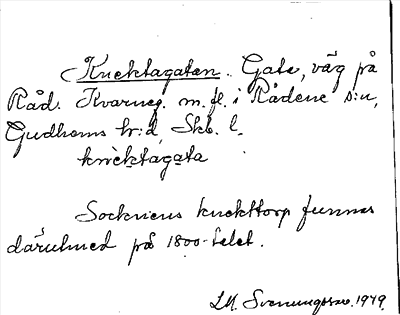 (Knektagatan. Gata, väg på
Råd. Kvarneg. m. fl. i Rådene s:n,
Gudhems hr:d, Skb. l.
knèktagata
Socknens knekttorp funnos
därutmed på 1800-talet.
LM. Svenungsson. 1949.